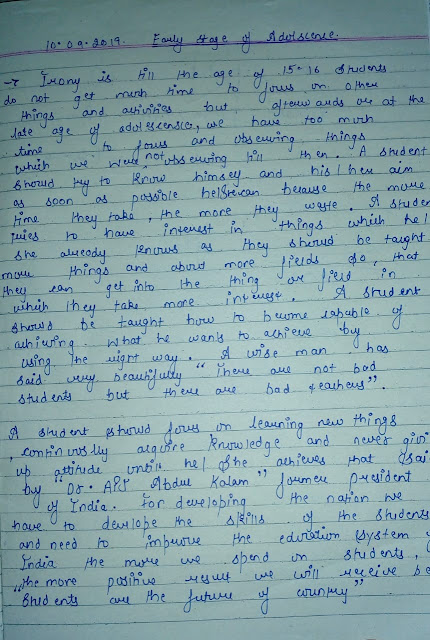 10.09.2019. Early stage of Adolscence.
→ Irony is till the age of 15-16 students
do not get much time to focus on other
things and activities but afterwards or at the
late age of adolescensce, we have too much
time to focus and observing things
which we were not observing till then. A student
should try to know himself and his/her aim
as soon as possible he/she can because the more
time they take, the more they waste. A studen
tries to have interest in things which he/
she already knows as they should be taught
more things and about more fields so, that
they can get into the thing or field in
which they take more interest. A student
should be taught how to become capable of
achiving what he wants to achieve by
using the right way. A wise man has
said very beautifully "There are not bad
students but there are bad teachers".
A student should focus on learning new things
, continously acquire knowledge and never givi
up attitude until he/she achieves that (sai
by "Dr. APJ Abdul Kalam" former president
of India. For developing the nation we
have to develope the skills of the students
and need to improve the education system o
India the more we spend on students,
"the more positive result we will receive be
students are the future of country"